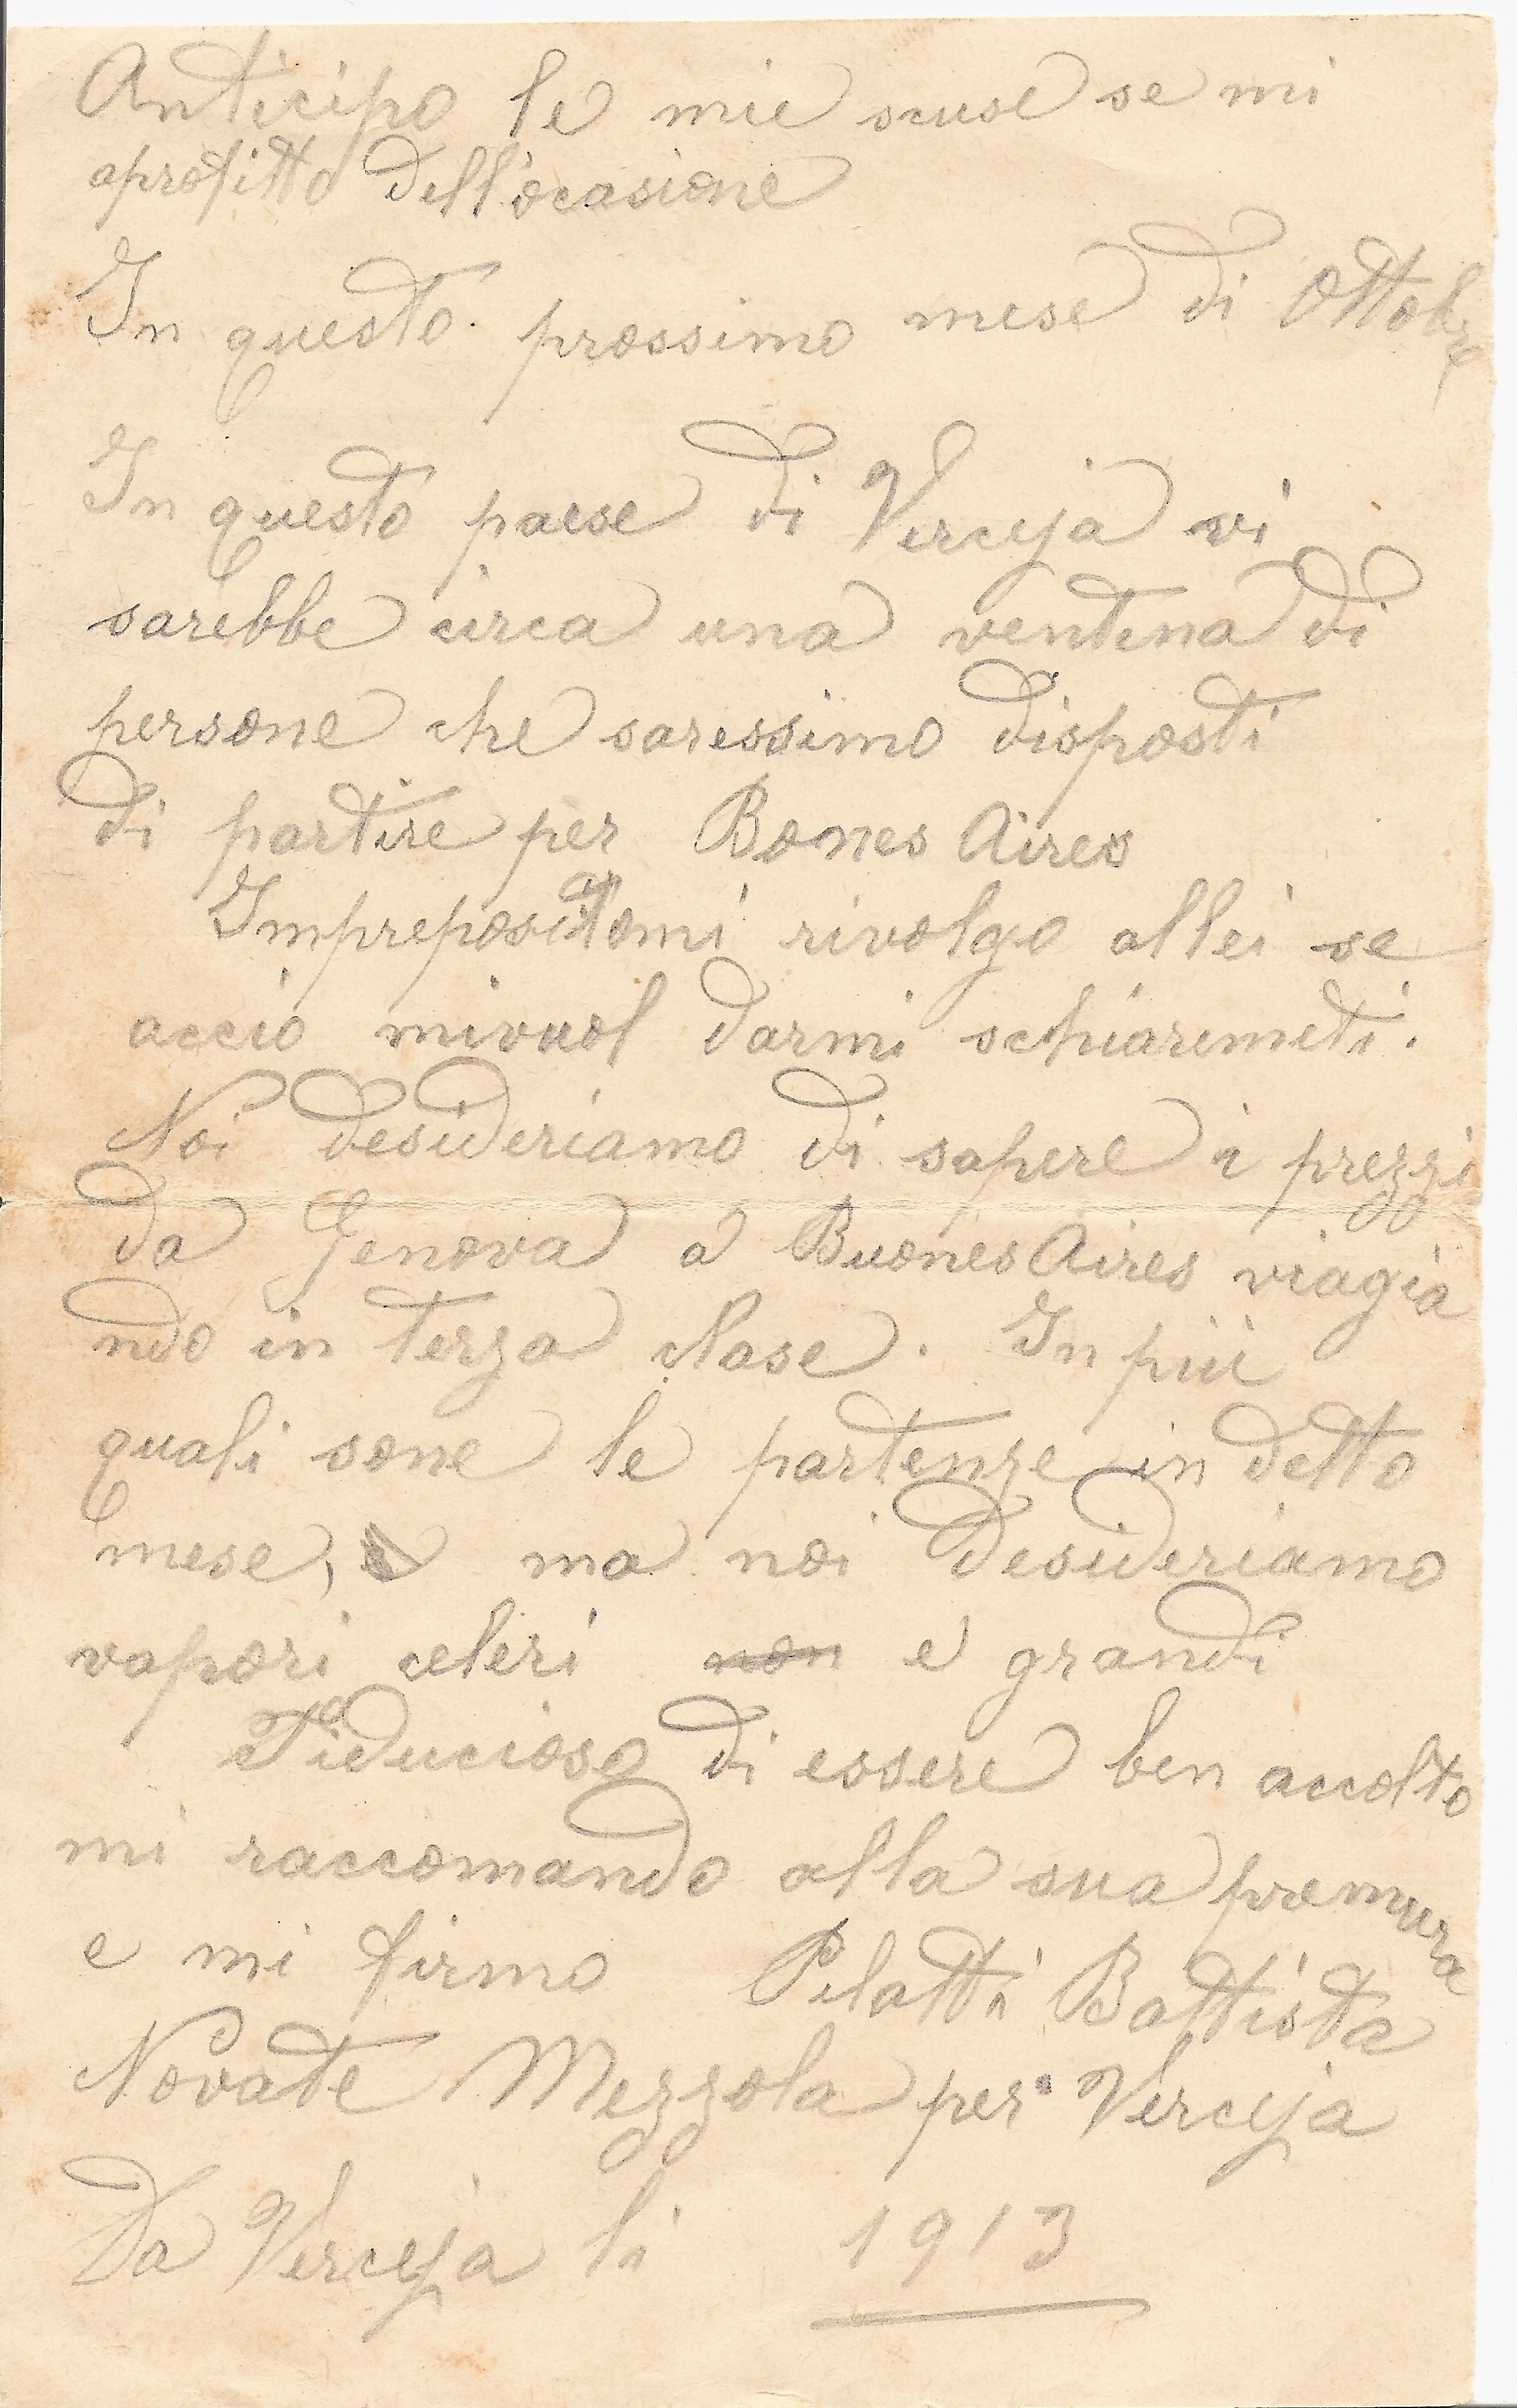 Anticipo le mie scuse se mi
aprofitto dell'ocasione
In questo prossimo mese di Ottobre
In questo paese di Verceja vi
sarebbe circa una ventina di
persone che saressimo disposti
di partire per Bones Aires
rivolgo allei se
acciò mivuol darmi schiaremeti.
Noi desideriamo di sapere i prezzi
da Genova a Buones Aires viagia
ndo in terza clase. In più
quali sone le partenze in detto
mese, ma noi desideriamo
vapori celeri non e grandi
Fiducioso di essere ben accolto
mi raccomando alla sua premura
e mi firmo Pilatti Battista
Novate Mezzola per Verceja
Da Verceja li 1913